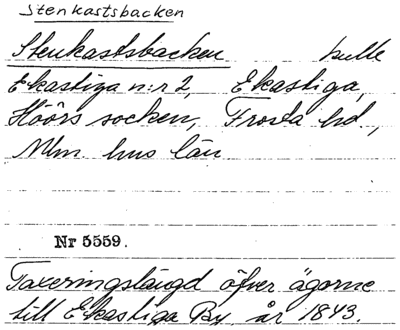 Stenkastsbacken
Stenkastsbacken kulle
Ekastiga n:r 2, Ekastiga,
Höörs socken, Frosta hd.,
Mlm hus län
Nr 5559.
Taxeringslängd öfver ägorne
till Ekastiga By år 1843.